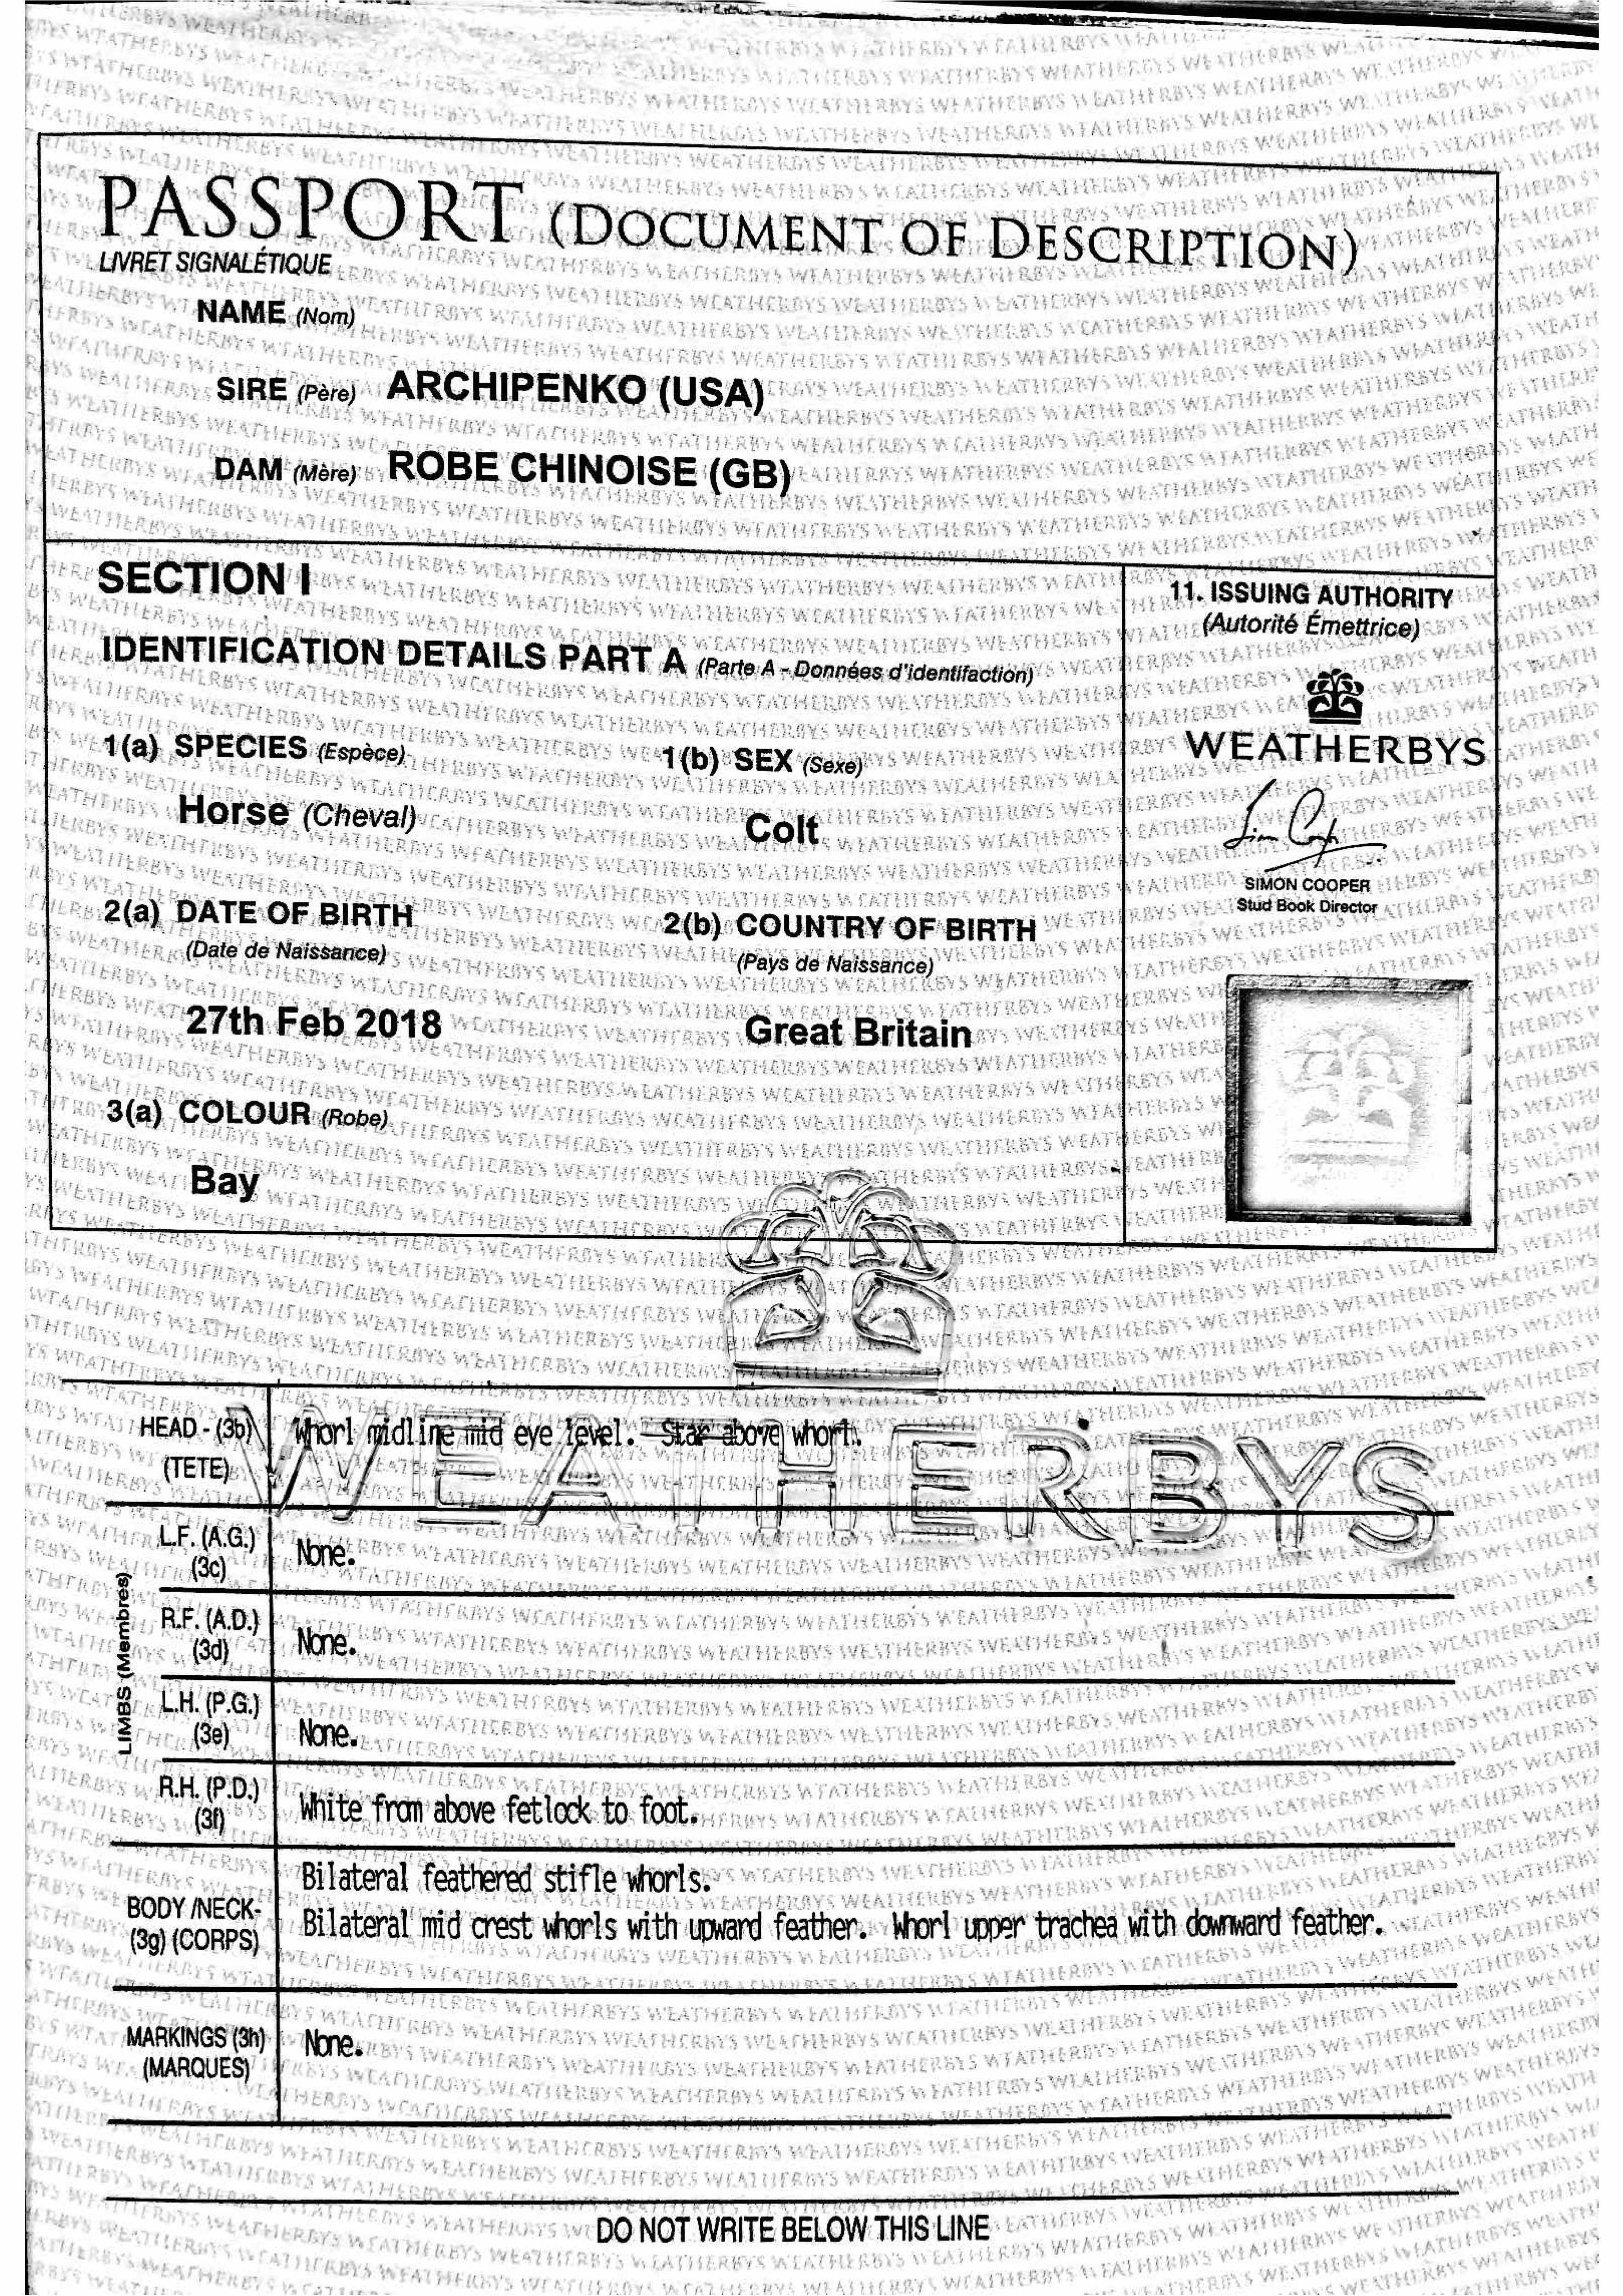 PASSPORT (DOCUMENT OF DESCRIPTION)
LIVRET SIGNALÉTIQUE
NAME (Nom)
SIRE (Père) ARCHIPENKO (USA)
DAM (Mère) ROBE CHINOISE (GB)
SECTION I
IDENTIFICATION DETAILS PART A (Parte A - Données d'identifaction)
1(a) SPECIES (Espèce)
1(b) SEX (Sexe)
Horse (Cheval)
Colt
2(a) DATE OF BIRTH
(Date de Naissance)
2(b) COUNTRY OF BIRTH
(Pays de Naissance)
27th Feb 2018
Great Britain
3(a) COLOUR (Robe)
Bay
11. ISSUING AUTHORITY
(Autorité Émettrice)
WEATHERBYS
SIMON COOPER
Stud Book Director
WEATHERBYS
HEAD - (3b)
(TETE)
Whorl midline mid eye level. Star above whorl.
LIMBS (Membres)
L.F. (A.G.)
(3c)
None.
R.F. (A.D.)
(3d)
None.
L.H. (P.G.)
(3e)
None.
R.H. (P.D.)
(3f)
White from above fetlock to foot.
BODY /NECK-
(3g) (CORPS)
Bilateral feathered stifle whorls.
Bilateral mid crest whorls with upward feather. Whorl upper trachea with downward feather.
MARKINGS (3h)
(MARQUES)
None.
DO NOT WRITE BELOW THIS LINE